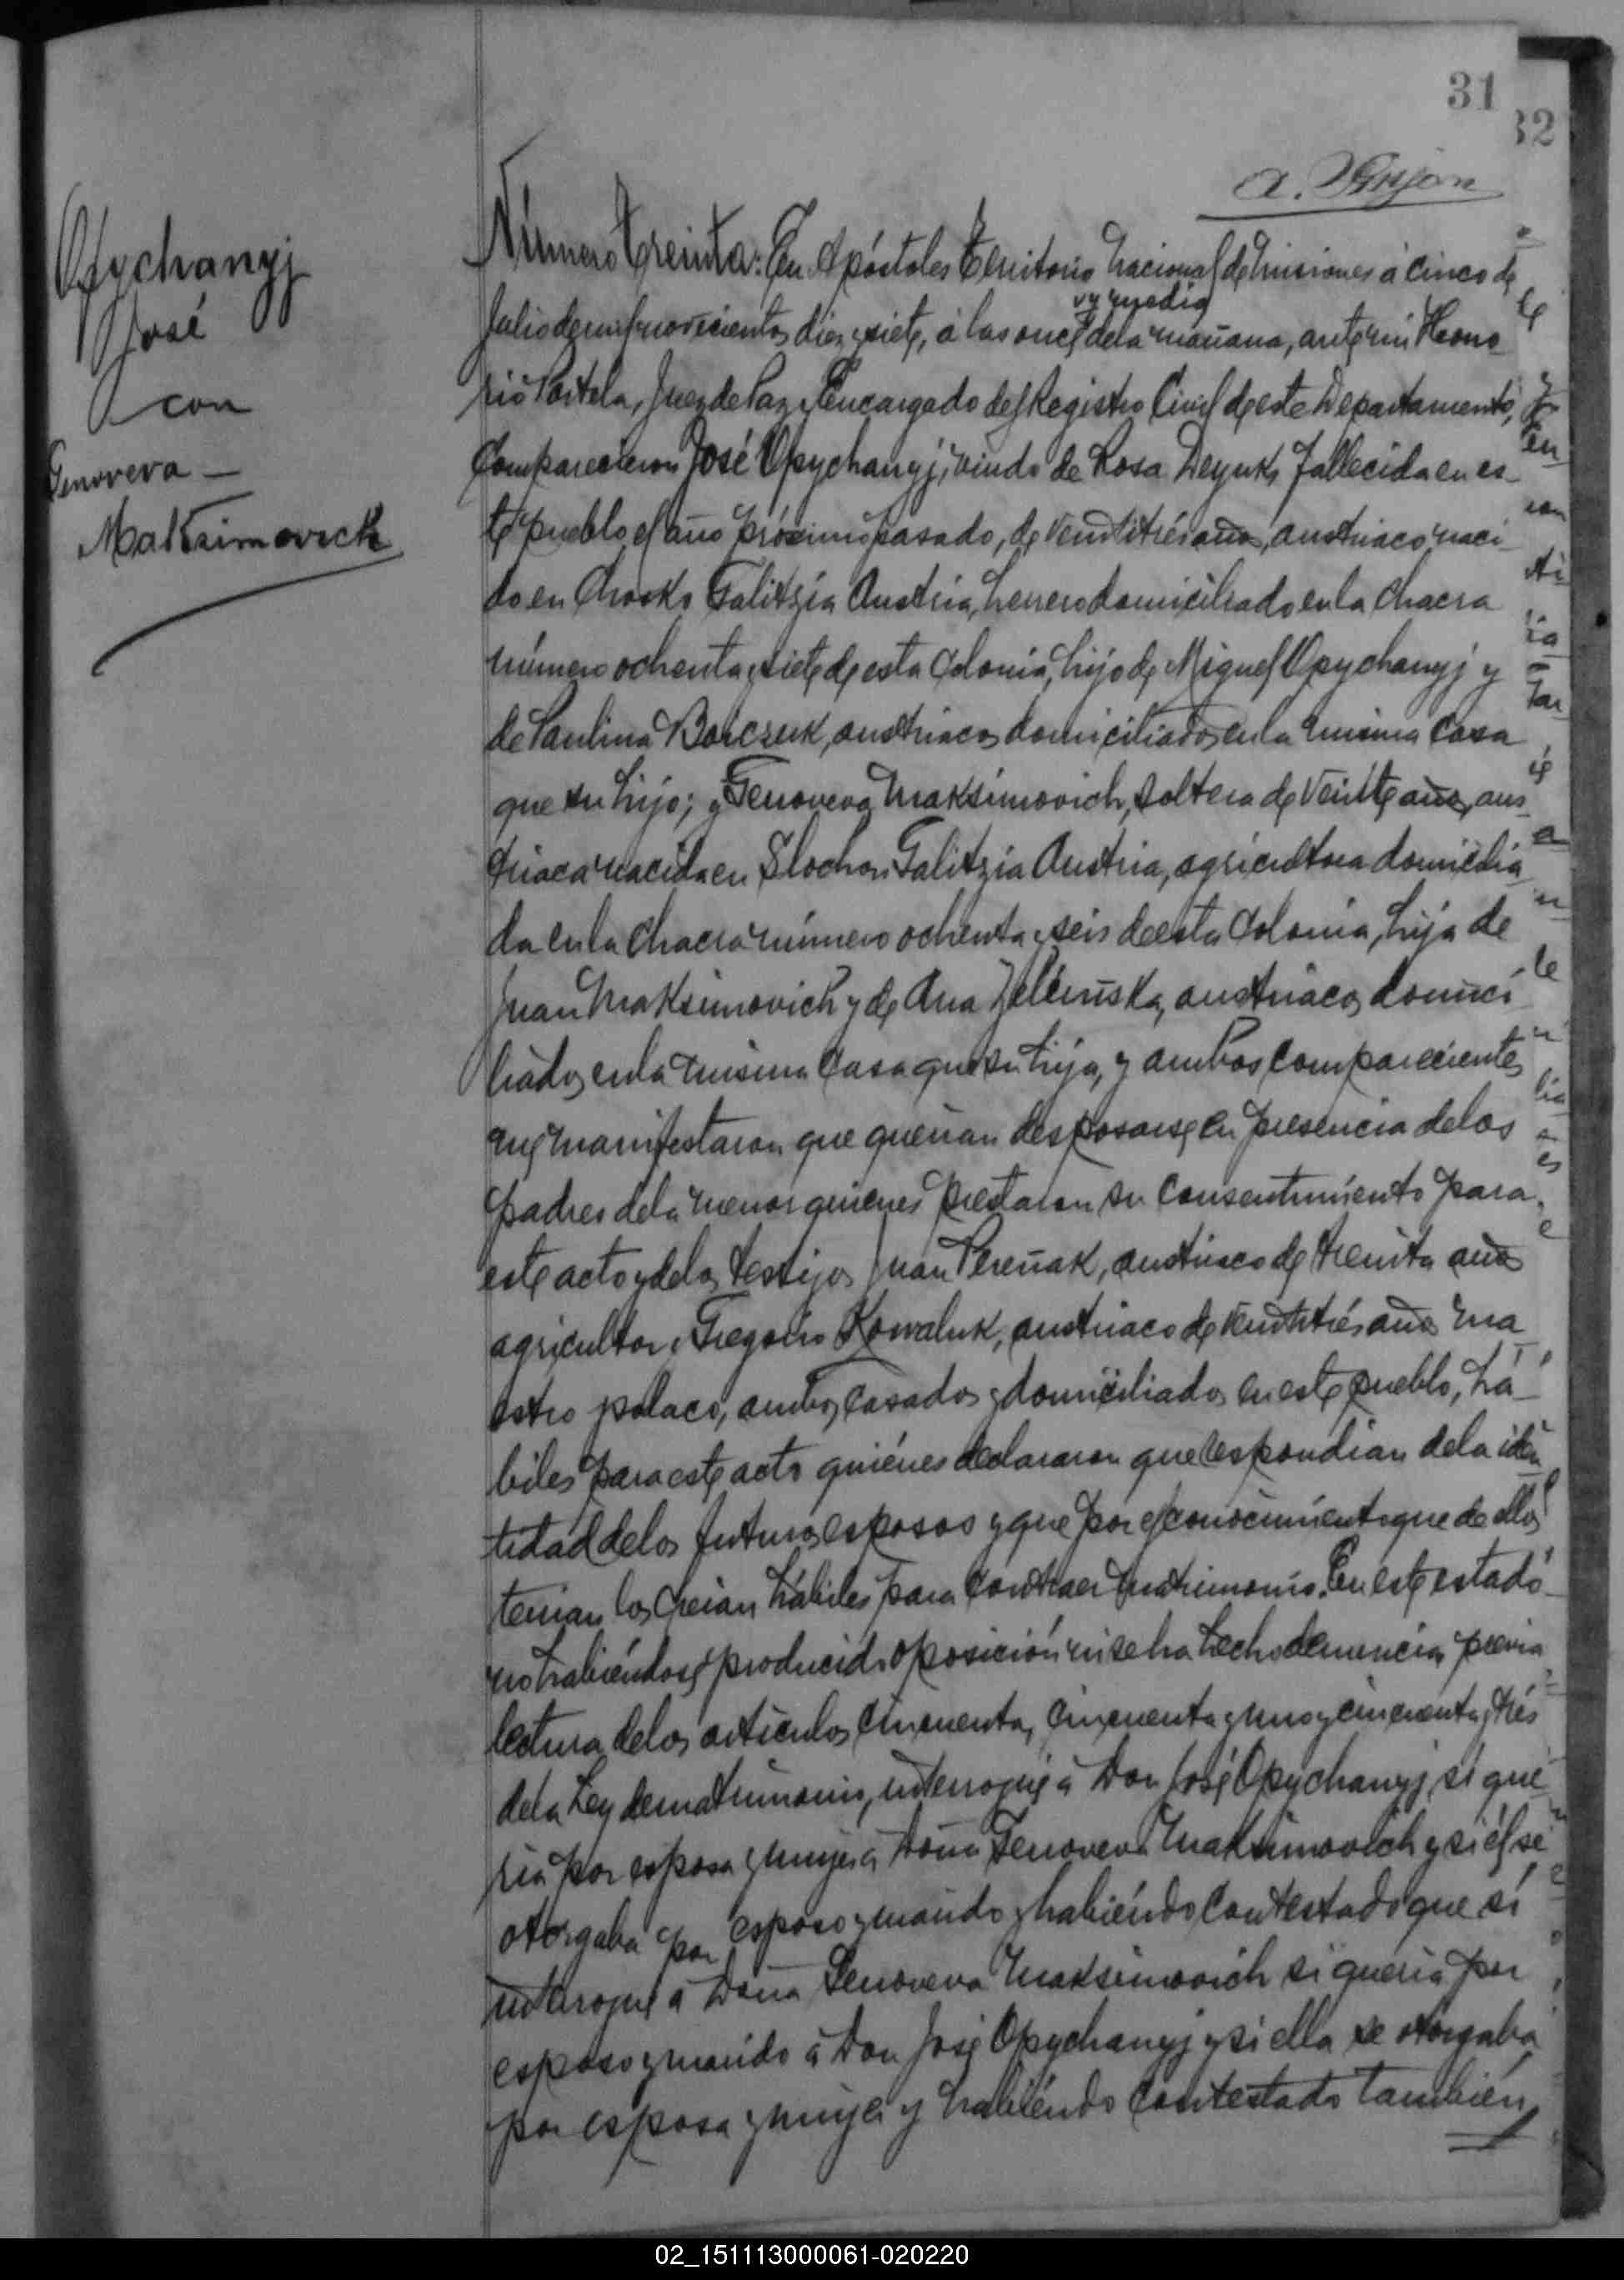 31
32
Opychanyj
José
con
Genoveva —
Maksimovich
Número Treinta: En Apóstoles Territorio Nacional de Misiones á cinco de
Julio de mil novecientos diez y siete, á las once y media de la mañana, ante mí Hono-
rio Portela, Juez de Paz y Encargado del Registro Civil de este Departamento,
Comparecieron José Opychanyj, viudo de Rosa Deyuk, fallecida en es-
te pueblo el año próximo pasado, de veintitrés años, austriaco, naci-
do en Galitzia Austria, herrero domiciliado en la chacra
número ochenta y siete de esta Colonia, hijo de Miguel Opychanyj y
de Paulina Borczuk, austriacos domiciliados en la misma casa
que su hijo; y Genoveva Maksimovich, soltera de veinte años, aus-
triaca nacida en Slochow Galitzia Austria, agricultora domicilia-
da en la chacra número ochenta y seis de esta Colonia, hija de
Juan Maksimovich y de Ana Zelinska, austriacos domici-
liados en la misma casa que su hija, y ambos comparecientes
me manifestaron que querían desposarse en presencia de los
padres de la menor quienes prestaron su consentimiento para
este acto y de los testigos Juan Pereñak, austriaco de treinta años
agricultor y Gregorio Kowaluk, austriaco de veintitrés años ma-
estro polaco, ambos casados y domiciliados en este pueblo, há-
biles para este acto quiénes declararon que respondían de la iden-
tidad de los futuros esposos y que por el conocimiento que de ellos
tenían los creían hábiles para contraer matrimonio. En este estado
no habiéndose producido oposición ni se ha hecho denuncia, previa
lectura de los artículos cincuenta, cincuenta y uno y cincuenta y trés
de la Ley de matrimonio, interrogué á Don José Opychanyj, si que-
ría por esposa y mujer á Doña Genoveva Maksimovich y si él se
otorgaba por esposo y marido y habiéndo contestado que sí
interrogué á Doña Genoveva Maksimovich si quería por
esposo y marido á Don José Opychanyj y si ella se otorgaba
por esposa y mujer y habiéndo contestado también
02_151113000061-020220